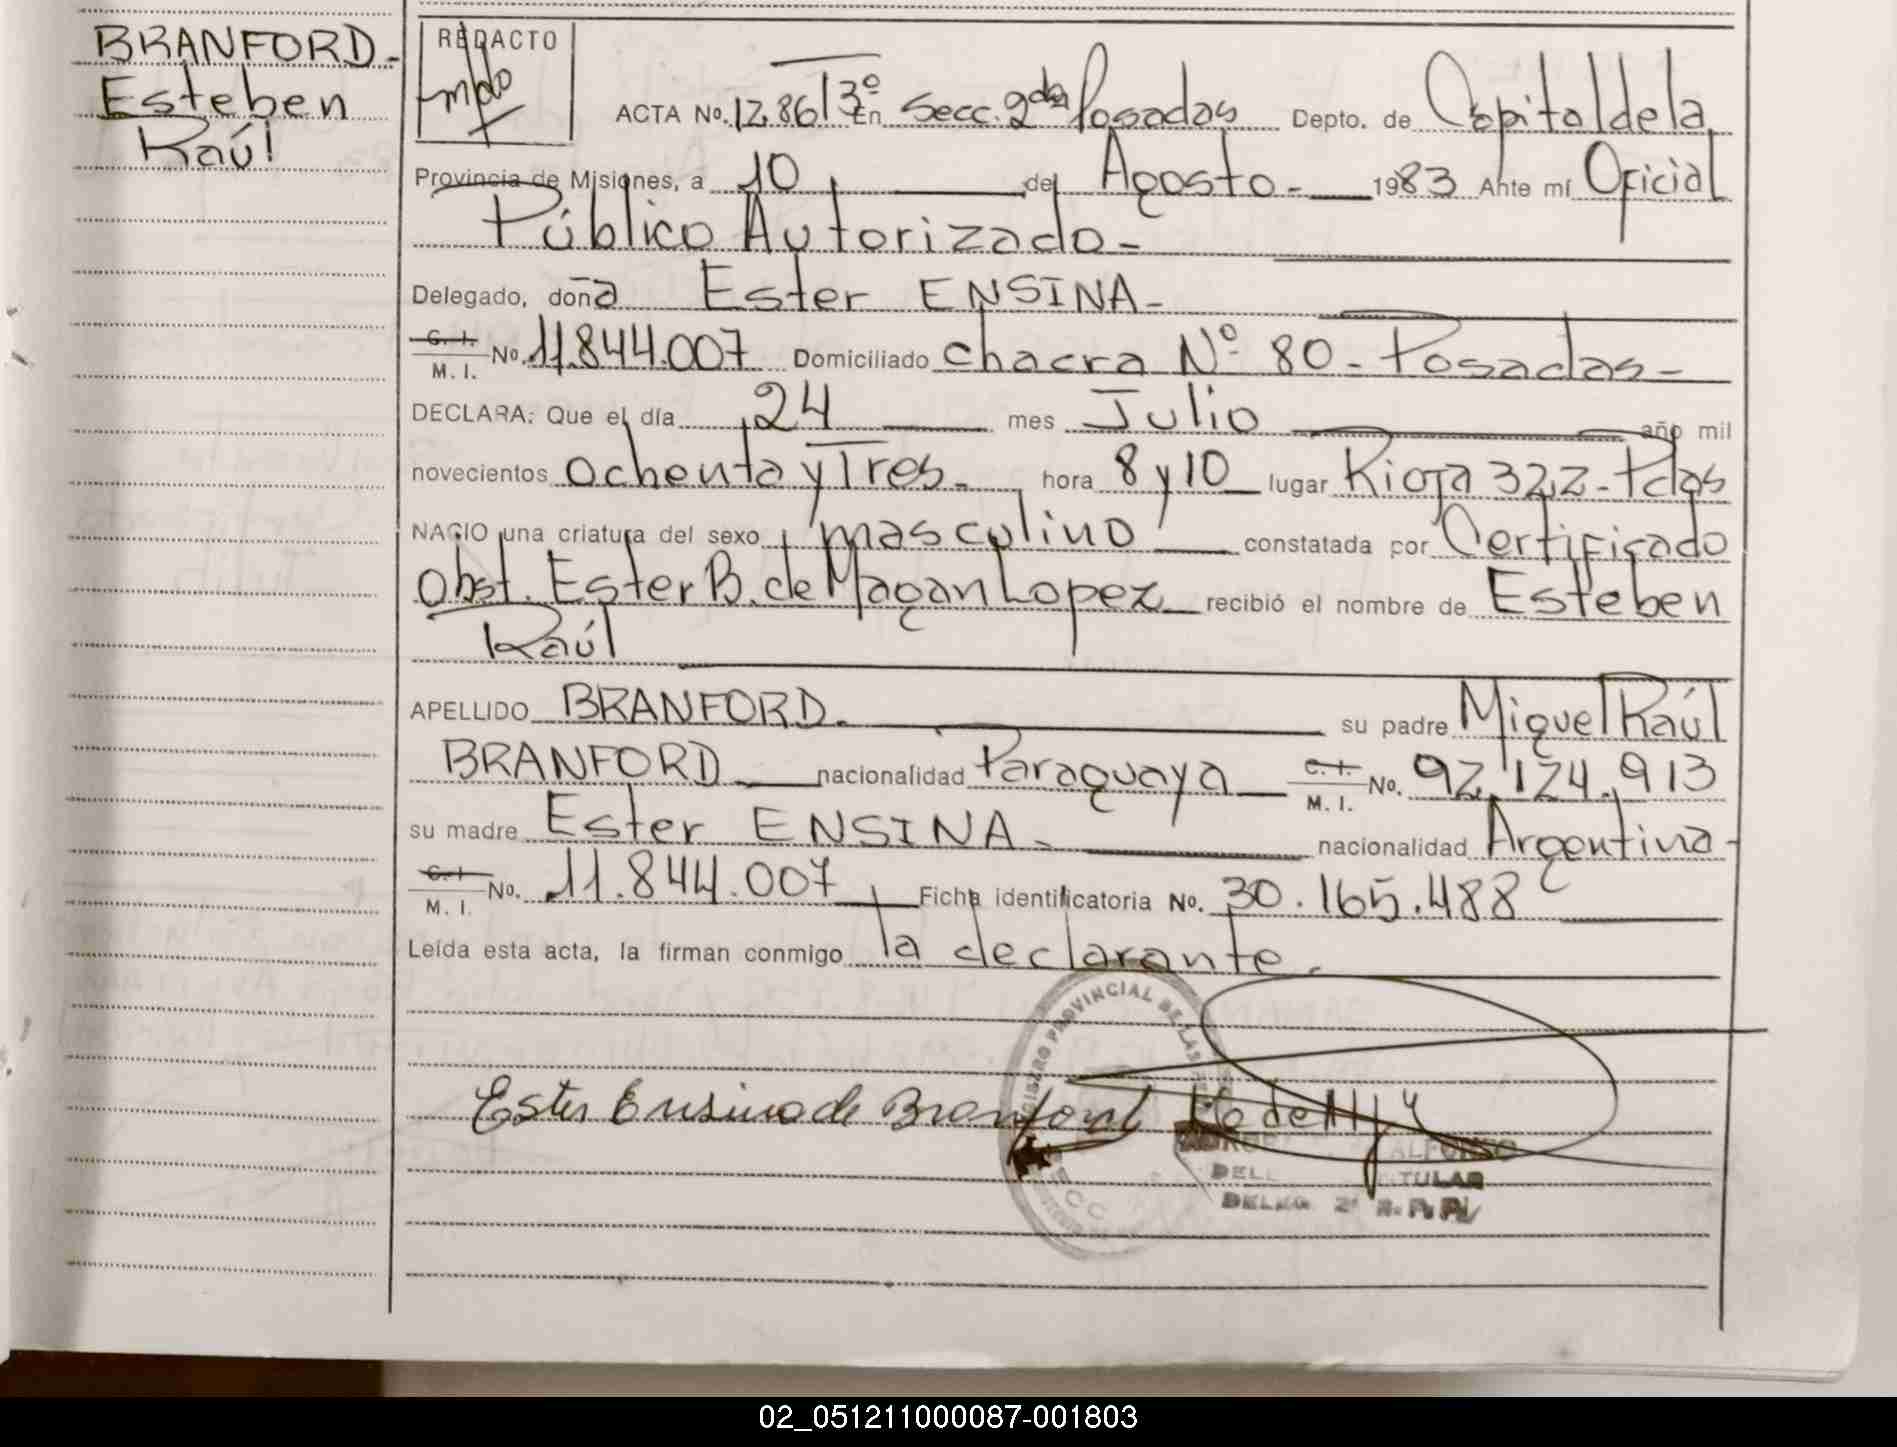 BRANFORD-
Esteben
Raúl
REDACTO
ACTA No. 1286/3º En Secc. 2da Posadas Depto. de Capital de la
Provincia de Misiones, a 10 de Agosto- 1983 Ante mí Oficial
Público Autorizado-
Delegado, doña Ester ENSINA-
C. I.
M. I. No. 11.844.007 Domiciliado chacra Nº 80- Posadas-
DECLARA: Que el día 24 mes Julio año mil
novecientos ochenta y Tres- hora 8 y 10 lugar Rioja 322- Pdas
NACIO una criatura del sexo masculino constatada por Certificado
Obst. Ester B. de Magan Lopez recibió el nombre de Esteben
Raúl
APELLIDO BRANFORD. su padre Miguel Raúl
BRANFORD nacionalidad Paraguaya C. I. M. I. No. 92.124.913
su madre Ester ENSINA- nacionalidad Argentina-
C. I.
M. I. No. 11.844.007 Ficha identificatoria No. 30.165.488
Leída esta acta, la firman conmigo la declarante.
REGISTRO PROVINCIAL DE LAS
Ester Ensina de Branford
ALFONSO
TITULAR
DELEG. 2ª R. P. P.
02_051211000087-001803